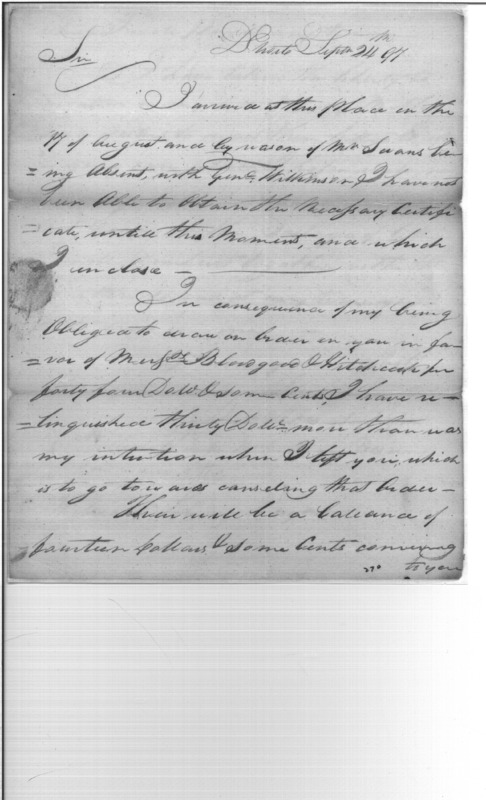 Detroit Septr 24th 97
Sir
I arrived at this place on the
17 of August, and by reason of Mr Swans be-
=ing Absent, with Genl Wilkinson, I have not
been Able to obtain the Necessary Certifi-
=cate, untill this Moment, and which
I inclose —
In consequence of my being
Obliged to draw an order on you in fa-
=vor of Messrs Bloodgood & Hitchcock for
forty four Dolls & some Cents, I have re-
=linquished thirty Dolls more than was
my intention when I left you, which
is to go towards canseling that order —
Their will be a ballance of
fourteen Dollars & some Cents comming
270
to you